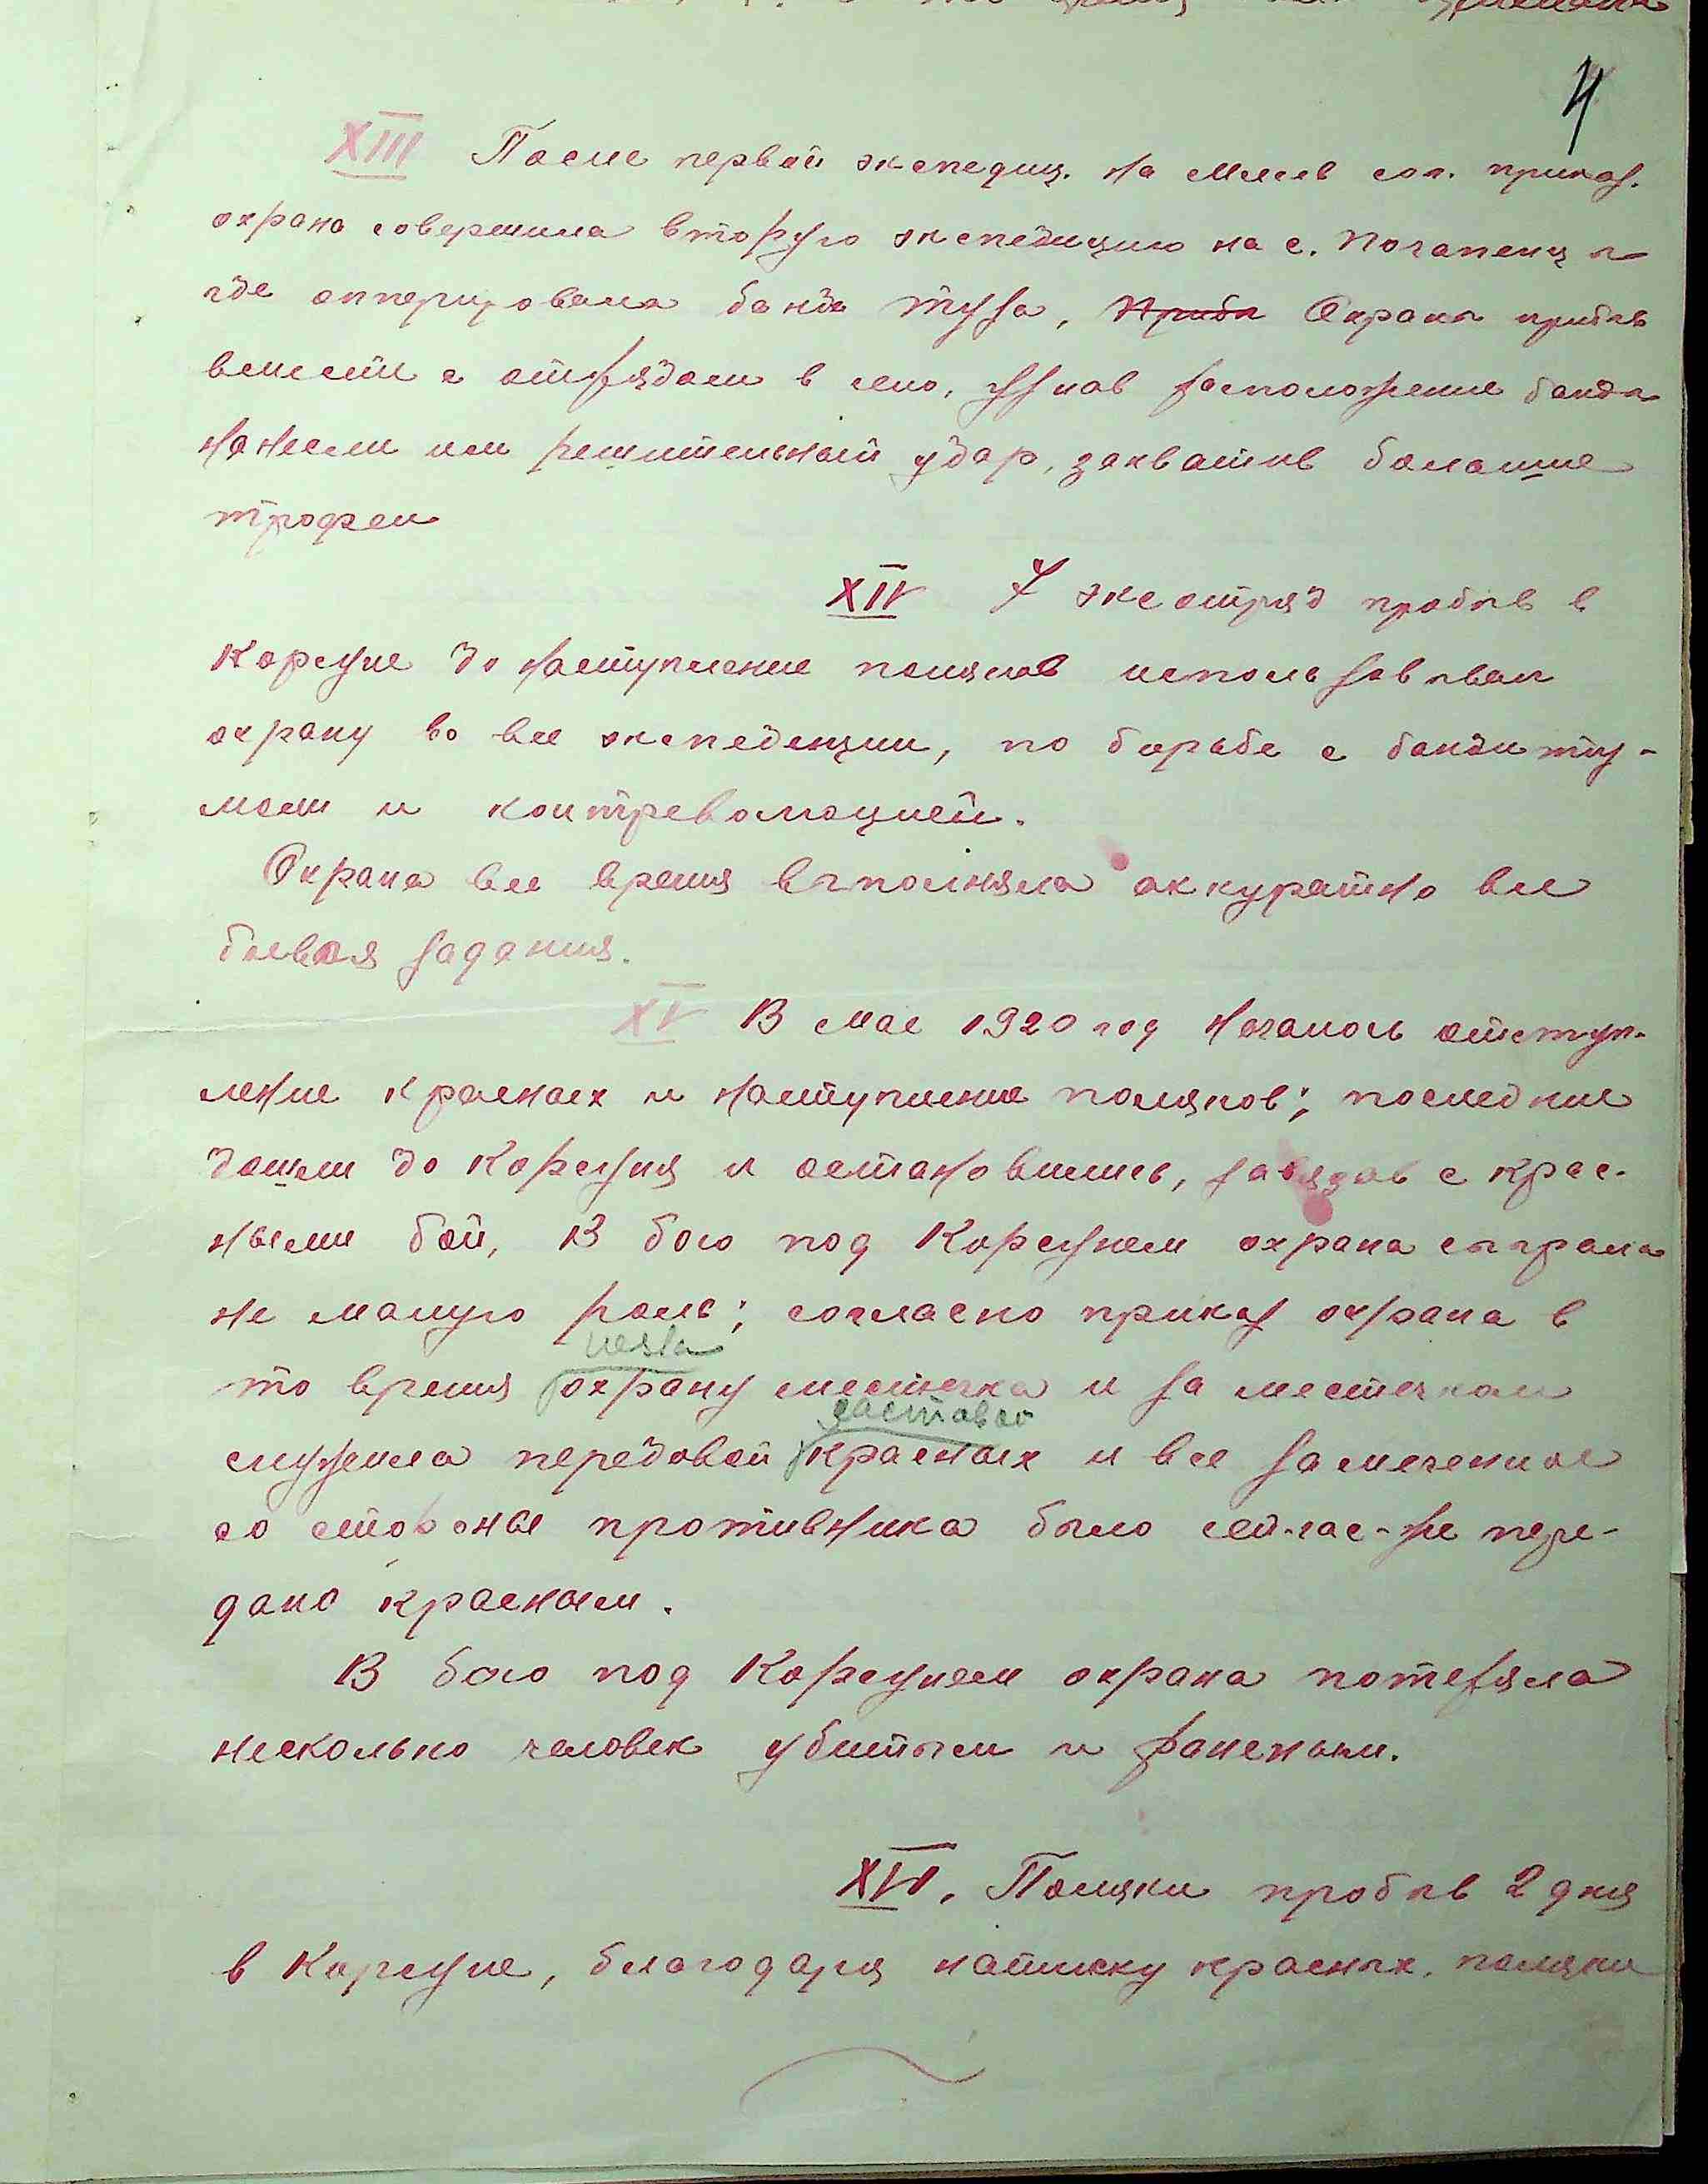 4
XIII После первой экспедиц. на Млеев сог. приказ.
охрана совершила вторую экспедицию на с. Почапенц
где опперировала банда Туза, Приби Охрана прибыв
вместе с отрядом в село, узнав расположение банды
нанесли им решительный удар, захватив большие
трофеи
XIV эксотряд пробыв в
Корсуне до наступление поляков использовывал
охрану во все экспедиции, по борьбе с бандитиз-
мом и контреволюцией.
Охрана все время выполняла аккуратно все
боевая задания.
XV В мае 1920 год началось отступ-
ление красных и наступление поляков; последние
дошли до Корсуня и остановились, завязав с крас-
ными бой, В бою под Корсунем охрана сыграла
не малую роль; согласно приказ охрана в
несла
то время охрану местечка и за местечком
заставой
служила передовой красных и все замеченное
со стороны противника было сейчас-же пере-
дано красным.
В бою под Корсунем охрана потеряла
несколько человек убитыми и ранеными.
XVI. Поляки пробыв 2 дня
в Корсуне, благодаря натиску красных, поляки